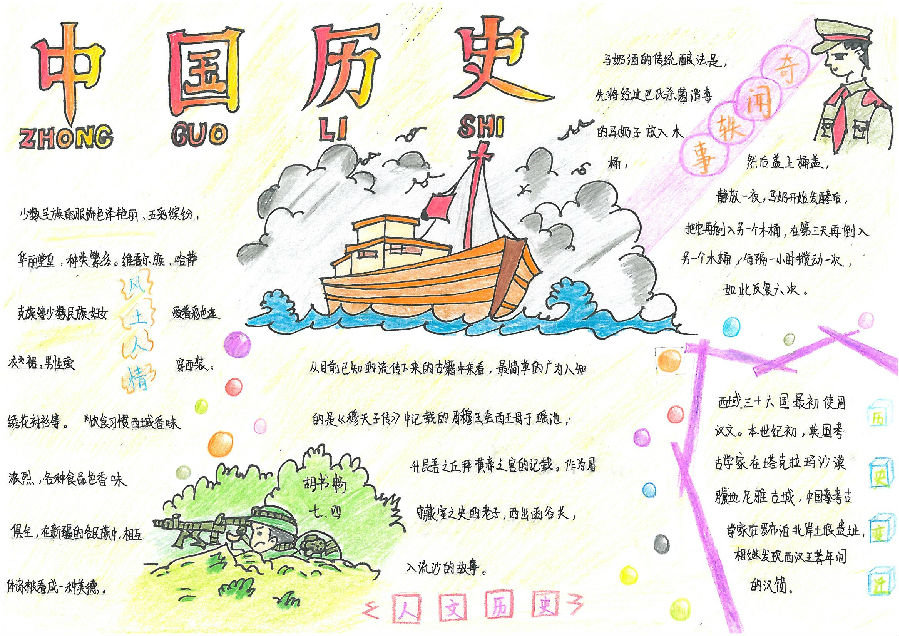 中国历史
ZHONG GUO LI SHI
奇闻轶事
马奶酒的传统酿法是，
先将经过巴氏杀菌消毒
的马奶子放入木
桶，
然后盖上桶盖，
静放一夜，马奶开始发酵后，
把它再倒入另一个木桶，在第三天再倒入
另一个木桶，每隔一小时搅动一次，
如此反复六次。
风土人情
少数民族的服饰色泽艳丽、五彩缤纷，
种类繁多。维吾尔族、哈萨
克族等少数民族妇女
爱着彩色连
衣裙，男性爱
穿西装、
绣花衬衫等。饮食习惯西域香味
浓烈，各种食品也香味
俱全，在新疆的各民族中，相互
一种美德。
从目前已知的流传下来的古籍中来看，最简单的广为人知
的是《穆天子传》中记载的周穆王会西王母于瑶池；
升昆仑之丘拜黄帝之宫的记载。作为周
守藏室之史的老子，西出函谷关，
入流沙的故事。
胡书畅
七四
人文历史
历史变迁
西域三十六国最初使用
汉文。本世纪初，英国考
古学家在塔克拉玛沙漠
腹地尼雅古城，中国考古
学家在罗布泊北岸土垠遗址，
相继发现西汉王莽年间
的汉简。